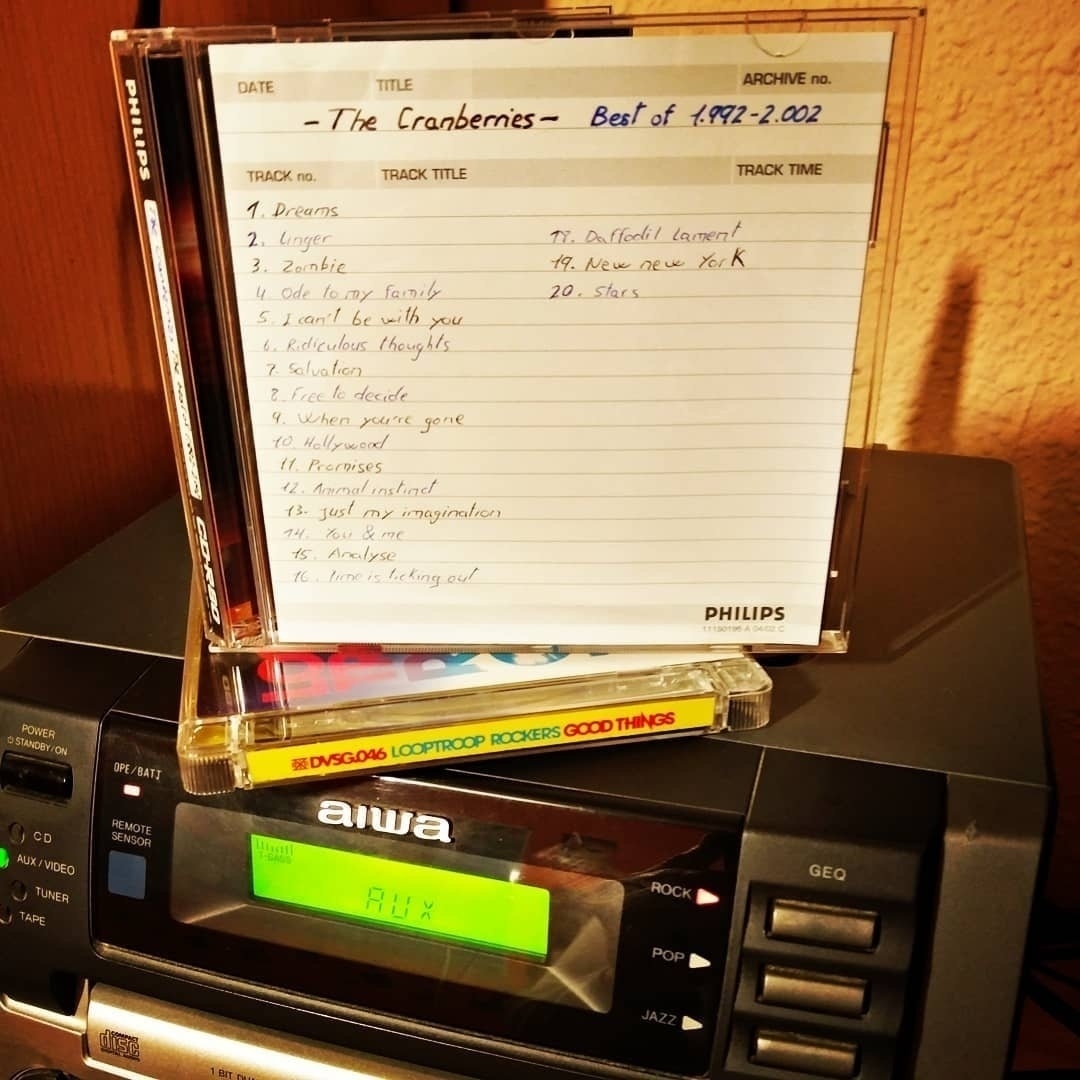 DATE TITLE ARCHIVE no.
-The Cranberries- Best of 1.992-2.002
TRACK no. TRACK TITLE TRACK TIME
1. Dreams
2. Linger
3. Zombie
4. Ode to my family
5. I can't be with you
6. Ridiculous thoughts
7. Salvation
8. Free to decide
9. When you're gone
10. Hollywood
11. Promises
12. Animal instinct
13- just my imagination
14. You & me
15. Analyse
16. Time is ticking out
18. Daffodil lament
19. New new York
20. Stars
PHILIPS
PHILIPS
CD-R80
DVSG.046 LOOPTROOP ROCKERS GOOD THINGS
POWER
STANDBY/ON
OPE/BATT
REMOTE
SENSOR
CD
AUX/VIDEO
TUNER
TAPE
aiwa
T-BASS
AUX
ROCK
POP
JAZZ
GEQ
COMPACT
disc
DIGITAL AUDIO
1 BIT